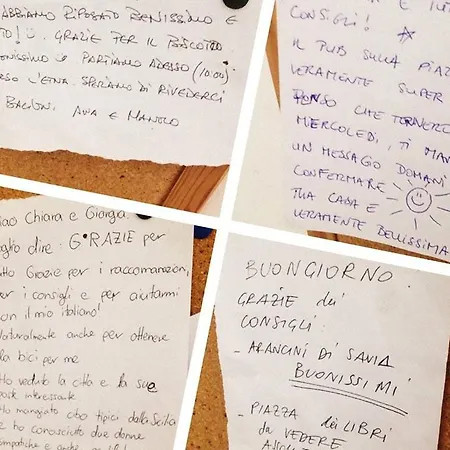 ABBIAMO RIPOSATO BENISSIMO E
TO! GRAZIE PER IL BISCOTTO
ENISSIMO PARTIAMO ADESSO (10:00)
RSO L'ETNA. SPERIAMO DI RIVEDERCI
BACIONI. ANA E MANOLO
CONSIGLI!
IL PUB SULLA PIAZ
VERAMENTE SUPER
PENSO CHE TORNERO
MERCOLEDÌ, TI MAN
UN MESSAGIO DOMANI
CONFERMARE
TUA CASA E
VERAMENTE BELLISSIMA
iao Chiara e Giorga
oglio dire: GRAZIE per
tto Grazie per i raccomanazioni,
er i consigli e per aiutarmi
con il mio italiano!
Naturalmente anche per ottenere
la bici per me
Ho veduto la città e la sue
parte interessante
Ho mangiato cibo tipici dalla Sicilia
e ho conosciuto due donne
mpatiche e anche
BUONGIORNO.
GRAZIE dei
CONSIGLI:
- ARANCINI DI SAVIA
BUONISSIMI
- PIAZZA dei LIBRI
da VEDERE